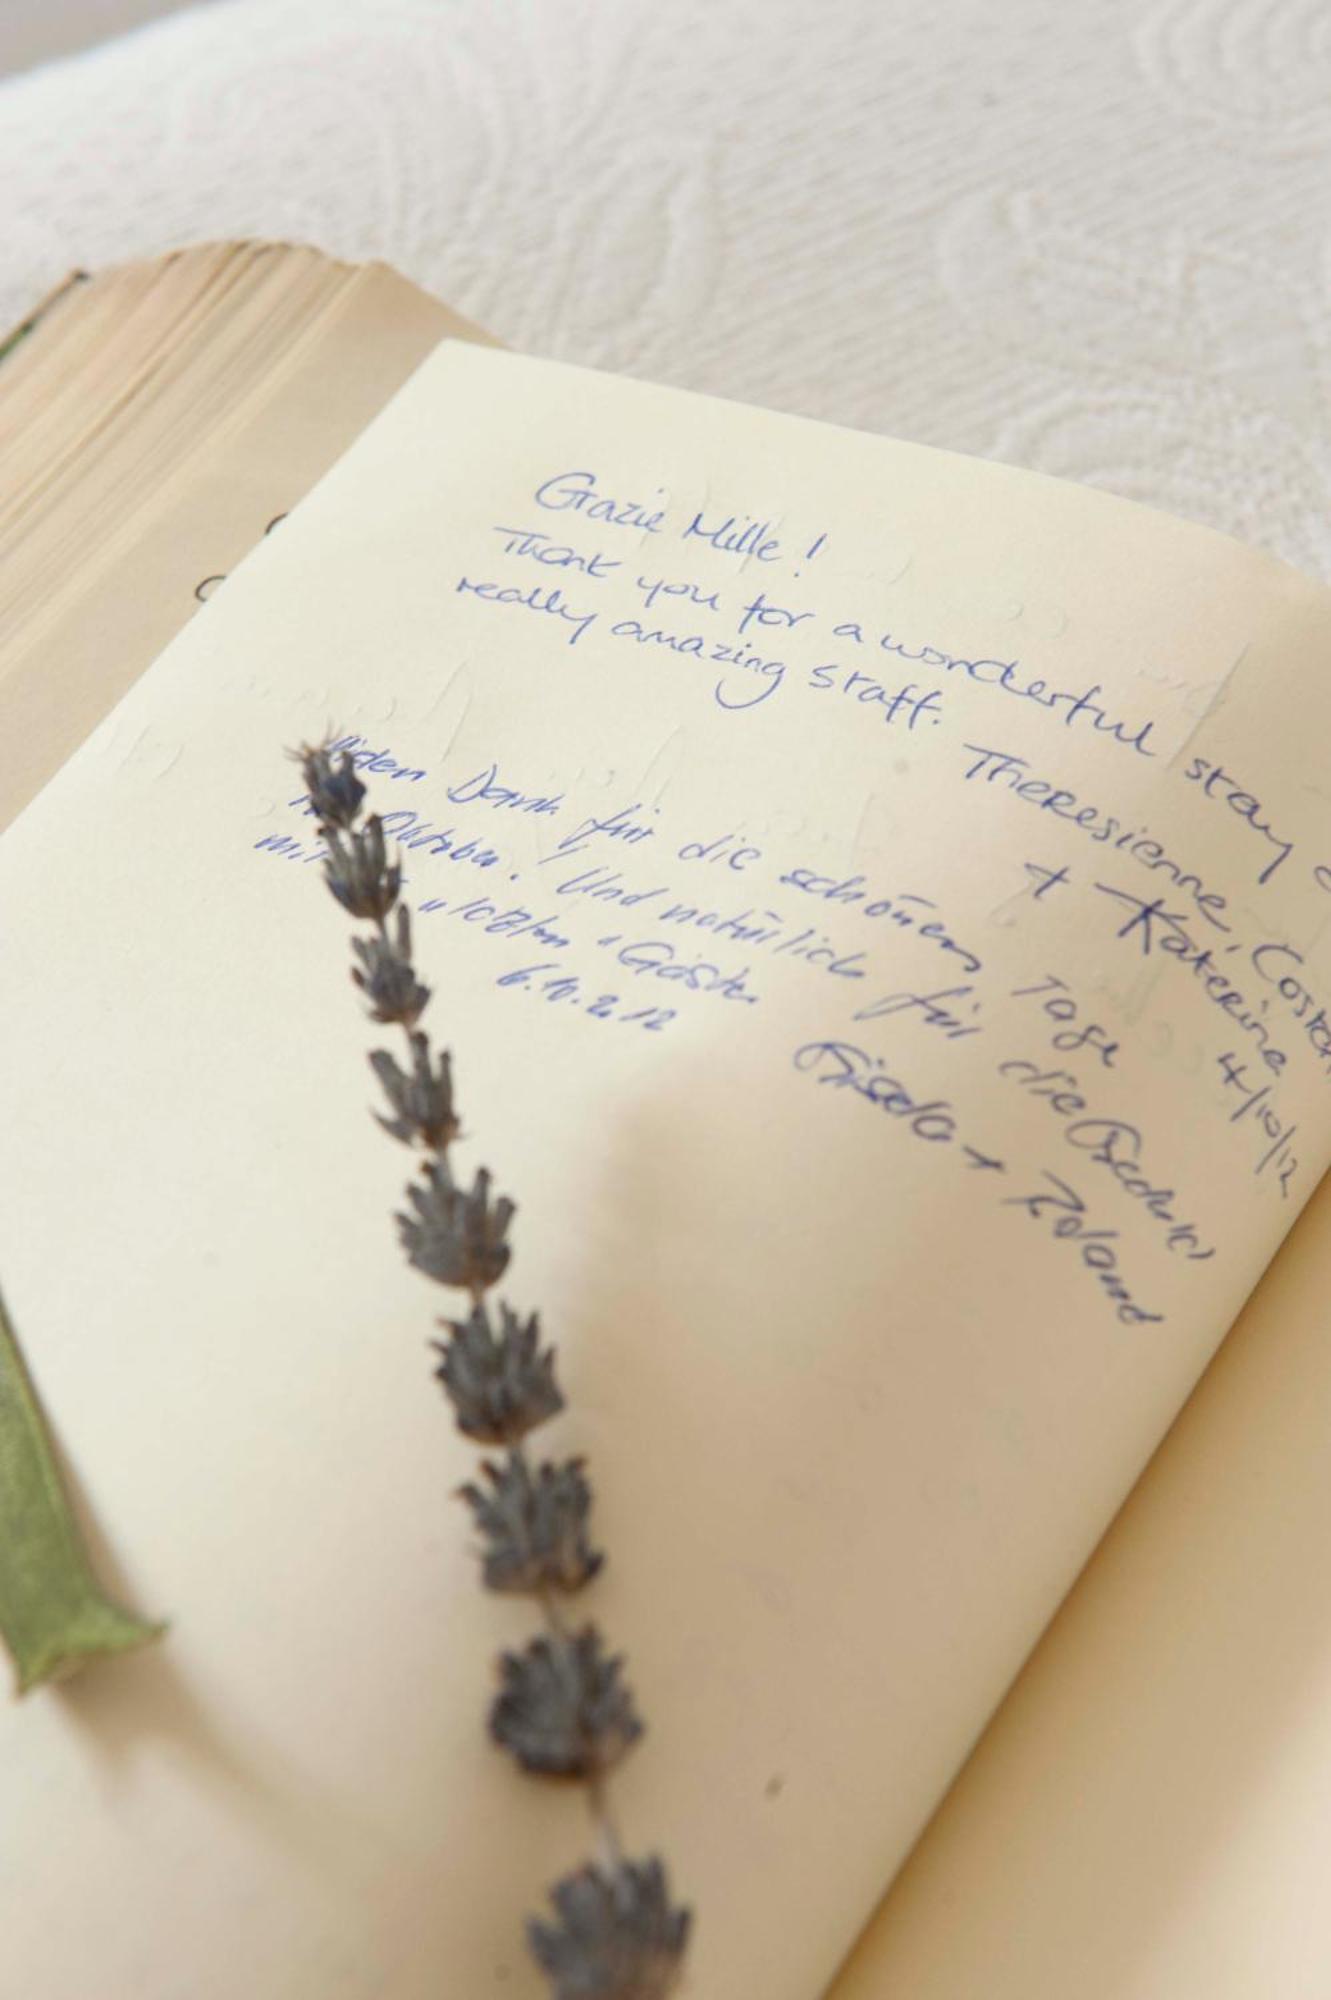 Grazie Mille!
Thank you for a wonderful stay
really amazing staff.
Theresienne,
+ Katerine
4/10/12
Vielen Dank für die schönen Tage
Oktober. Und natürlich für die Geduld
mit "letzten" Gästen
6.10.2012
Gisela + Roland